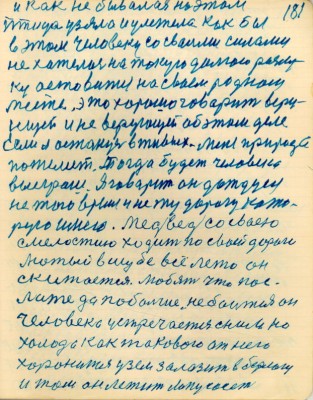 181
и как не бывал на этом
птица узяла и улетела как бы
в этом человеку со своими силами
не хателась на такую далгою
ку астовится на своем родному
месте. Это хорошо говарит веру-
ющей и не верующей об этом деле
если я останусь в живых. Мене природа
пашлет. Тогда будет человеку
выеграш. Я говарит он дажду
не того время и не ту дарогу кото-
рую шнего. Медведь со своею
смелостию ходит по своей дороги
лютый в шубе всё лето он
скитается. Любит что пос-
лаще да поболше, не боится он
человека устречается с ним но
холода как такового от него
хоронится узем залазит в берлогу
и там он лежит лапу сосет